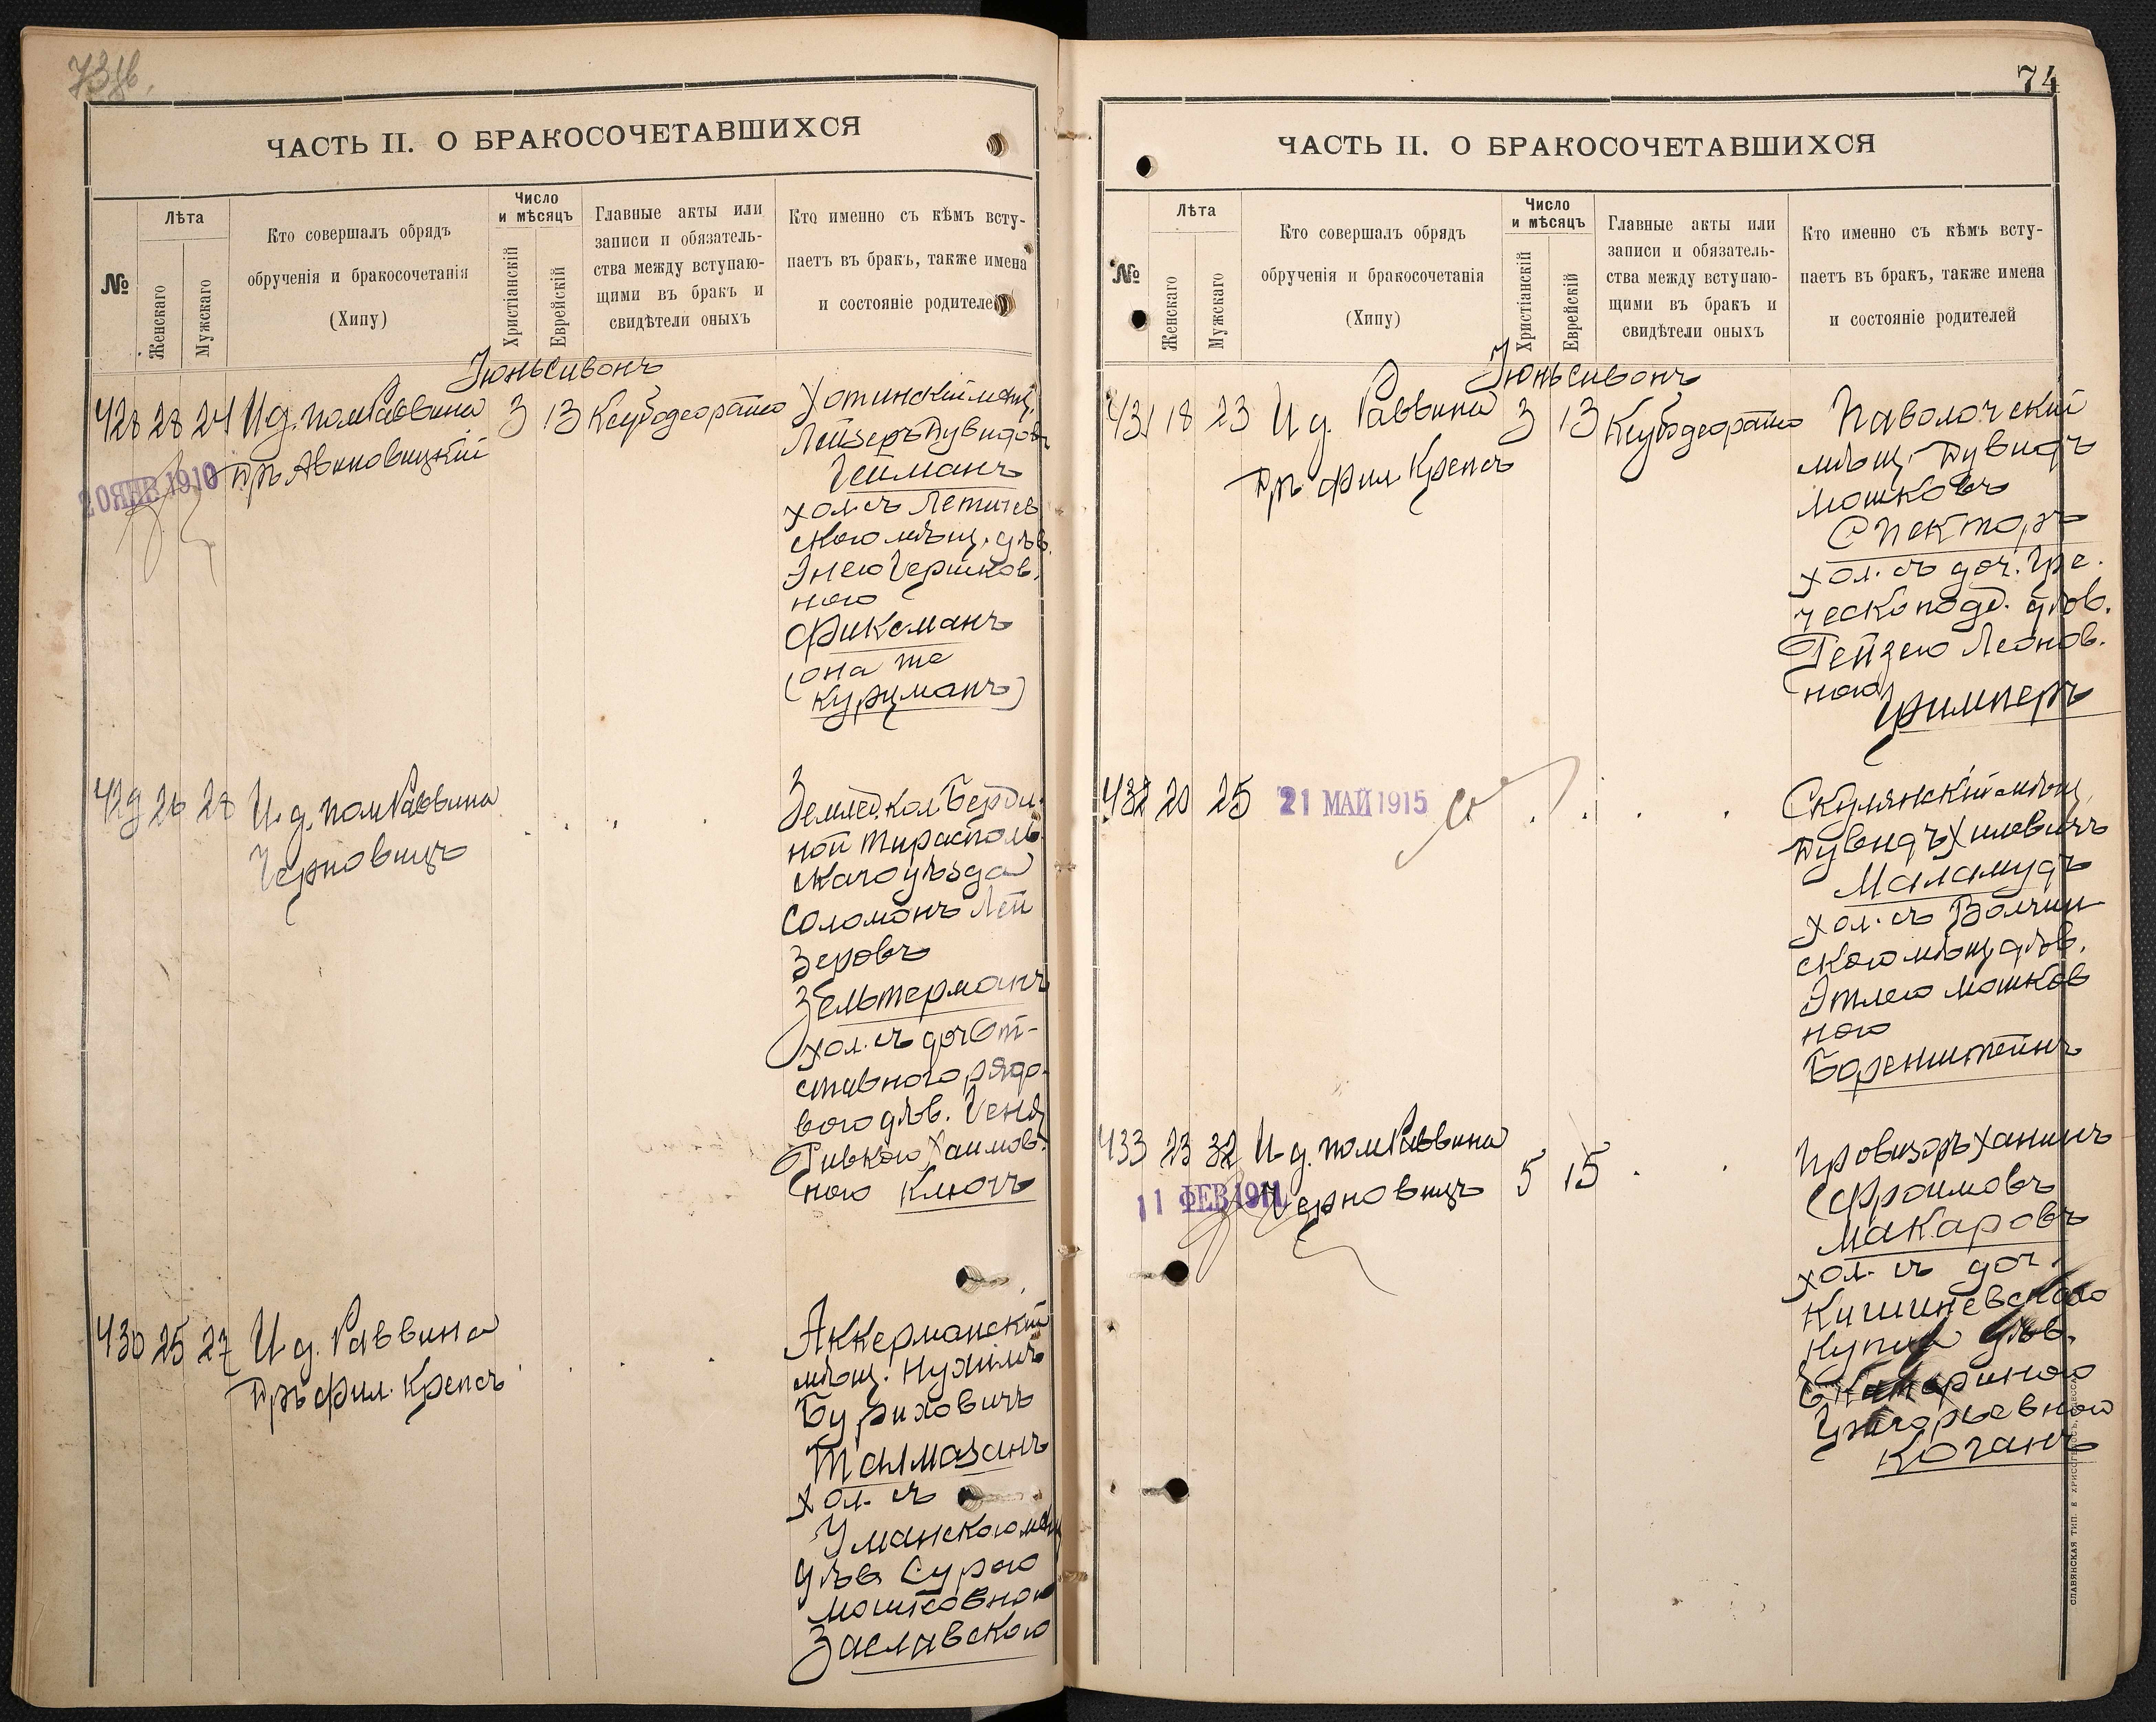 73об.
ЧАСТЬ II. О БРАКОСОЧЕТАВШИХСЯ
№
Лѣта
Женскаго
Мужскаго
Кто совершалъ обрядъ
обрученія и бракосочетанія
(Хипу)
Число
и мѣсяцъ
Христіанскій
Еврейскій
Главные акты или
записи и обязатель-
ства между вступаю-
щими въ бракъ и
свидѣтели оныхъ
Кто именно съ кѣмъ всту-
паетъ въ бракъ, также имена
и состояніе родителей
Іюнь Сивонъ
428 28 24 И д. пом Раввина 3 13
Дръ Авиновицкій
20 ЯНВ 1910
Хотинскій мѣщ.
Лейзеръ Дувидовъ
Гейманъ
хол. съ Летичев
скою мѣщ. дѣв.
Энею Гершков.
ною
Фиксманъ
(она же
Курцманъ)
429 26 28 И. д. пом Раввина
Черновицъ
Землед. Кол.
ной Тирасполь
скаго уѣзда
Соломонъ Лей
зеровъ
Зельтерманъ
хол. съ доч От-
ставного рядо-
вого дѣв. Геня
Ривкою Хаимов.
ною Ключъ
430 25 27 И д. Раввина
Дръ Фил. Крепсъ
Аккерманскій
мѣщ. Нухимъ
Бурихович
Талмазанъ
хол. съ
Уманскою мѣщ
дѣв. Сурою
Мошковною
Заславскою
74
ЧАСТЬ II. О БРАКОСОЧЕТАВШИХСЯ
№
Лѣта
Женскаго
Мужскаго
Кто совершалъ обрядъ
обрученія и бракосочетанія
(Хипу)
Число
и мѣсяцъ
Христіанскій
Еврейскій
Главные акты или
записи и обязатель-
ства между вступаю-
щими въ бракъ и
свидѣтели оныхъ
Кто именно съ кѣмъ всту-
паетъ въ бракъ, также имена
и состояніе родителей
Іюнь Сивонъ
431 18 23 И д. Раввина 3 13
Дръ Фил Крепсъ
Паволочскій
мѣщ. Дувидъ
Мошковъ
Спекторъ
хол. съ доч. Гре.
ческо подд. дѣв.
Рейзею Леонов.
ною
Фимперъ
432 20 25
21 МАЙ 1915
Скулянскій мѣщ.
Дувидъ Хилевичъ
Маламудъ
хол. съ Волчин
скою мѣщ дѣв.
Этлею Мошков
ною
Боренштейнъ
433 23 32 И д. пом Раввина 5 15
Черновицъ
11 ФЕВ 1911
Провизоръ Ханинъ
Фроимовъ
Макаровъ
хол. съ доч.
Кишиневского
купца дѣв.
Екатериною
Григорьевною
Коганъ
СЛАВЯНСКАЯ ТИП. Е ХРИСОГЕЛОСЪ, ОДЕССА.